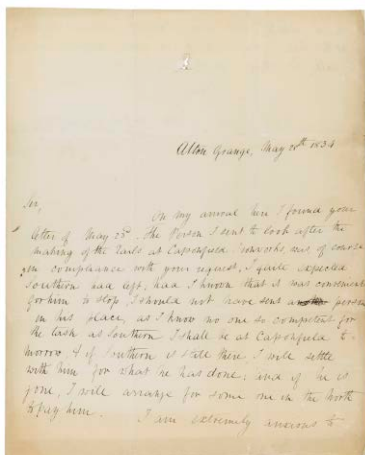 Alton Grange, May 28th 1834
Sir,
On my arrival here I found your
letter of May 23d. The Person I sent to look after the
making of the rails at Caponfield Ironworks, was of course
in compliance with your request, I quite expected
Southern had left, had I known that it was convenient
for him to stop, I should not have sent another person
in his place, as I know no one so competent for
the task as Southern. I shall be at Caponfield to-
morrow & if Southern is still there, I will settle
with him for what he has done; and if he is
gone, I will arrange for some one in the north
to pay him. I am extremely anxious to